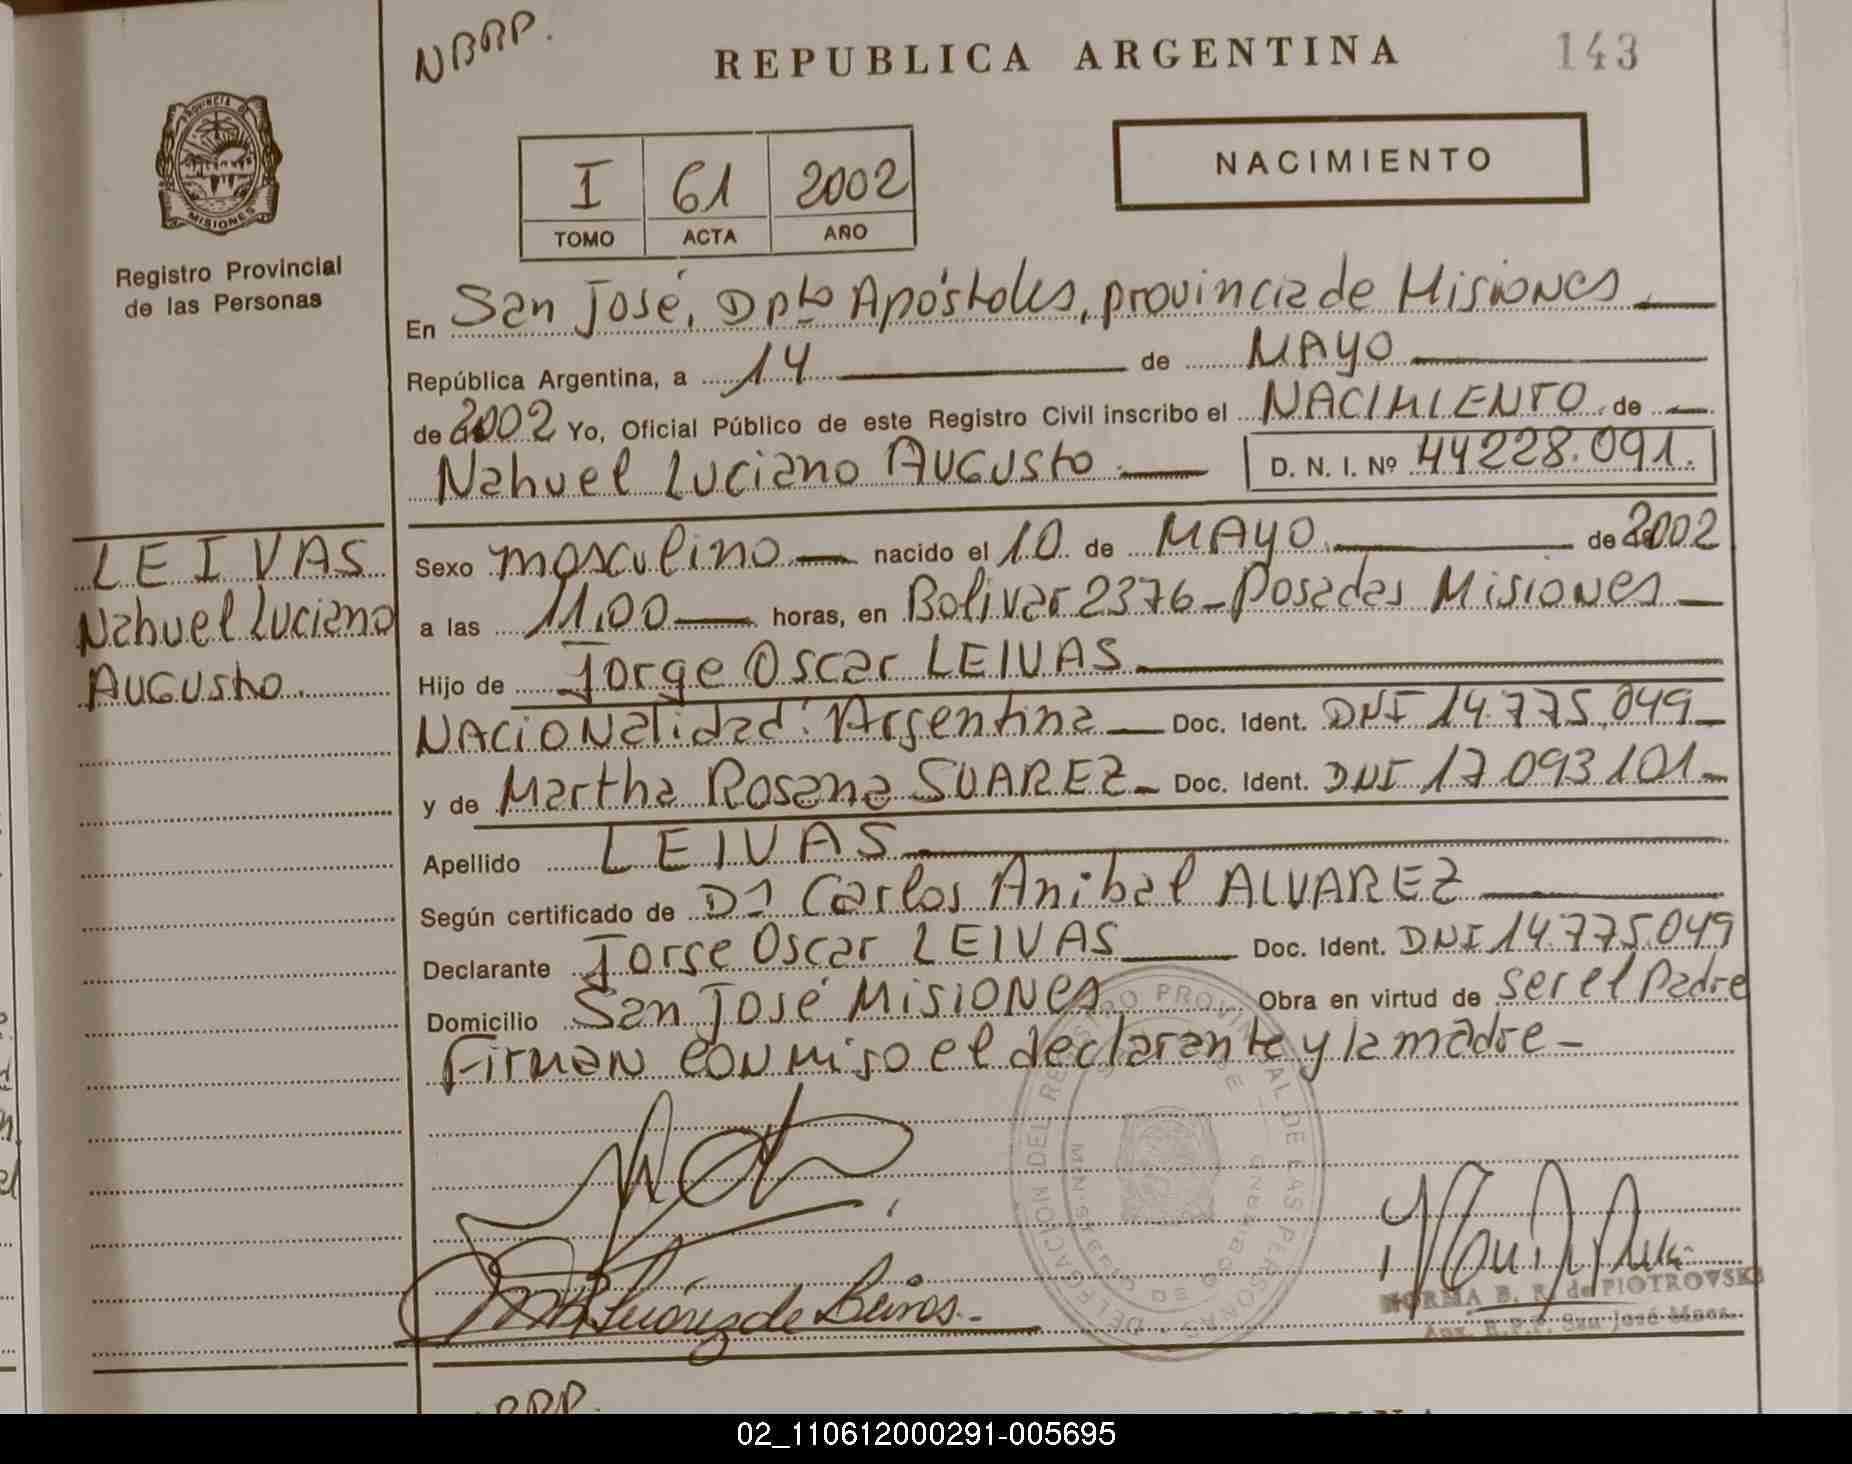 NBRP.
REPUBLICA ARGENTINA
143
PROVINCIA D
MISIONES
Registro Provincial
de las Personas
I 61 2002
TOMO ACTA AÑO
NACIMIENTO
En San José, Dpto Apóstoles, provincia de Misiones
República Argentina, a 14 de MAYO
de 2002 Yo, Oficial Público de este Registro Civil inscribo el NACIMIENTO de
Nahuel Luciano Augusto. D. N. I. Nº 44228.091.
LEIVAS
Nahuel Luciano
Augusto.
Sexo masculino nacido el 10 de MAYO de 2002
a las 11,00 horas, en Bolivar 2376 - Posadas Misiones
Hijo de Jorge Oscar LEIVAS
Nacionalidad: Argentina Doc. Ident. DNI 14.775.049
y de Martha Rosana SUAREZ Doc. Ident. DNI 17.093.101
Apellido LEIVAS
Según certificado de Dr Carlos Anibal ALVAREZ
Declarante Jorge Oscar LEIVAS Doc. Ident. DNI 14.775.049
Domicilio San José Misiones Obra en virtud de ser el padre
Firman conmigo el declarante y la madre -
DELEGACION DEL REGISTRO PROVINCIAL DE LAS PERSONAS
Suárez de Leivas.
NORMA B. R. de PIOTROVSKI
Aux. R.P.P. San José Mnes.
RRP.
02_110612000291-005695